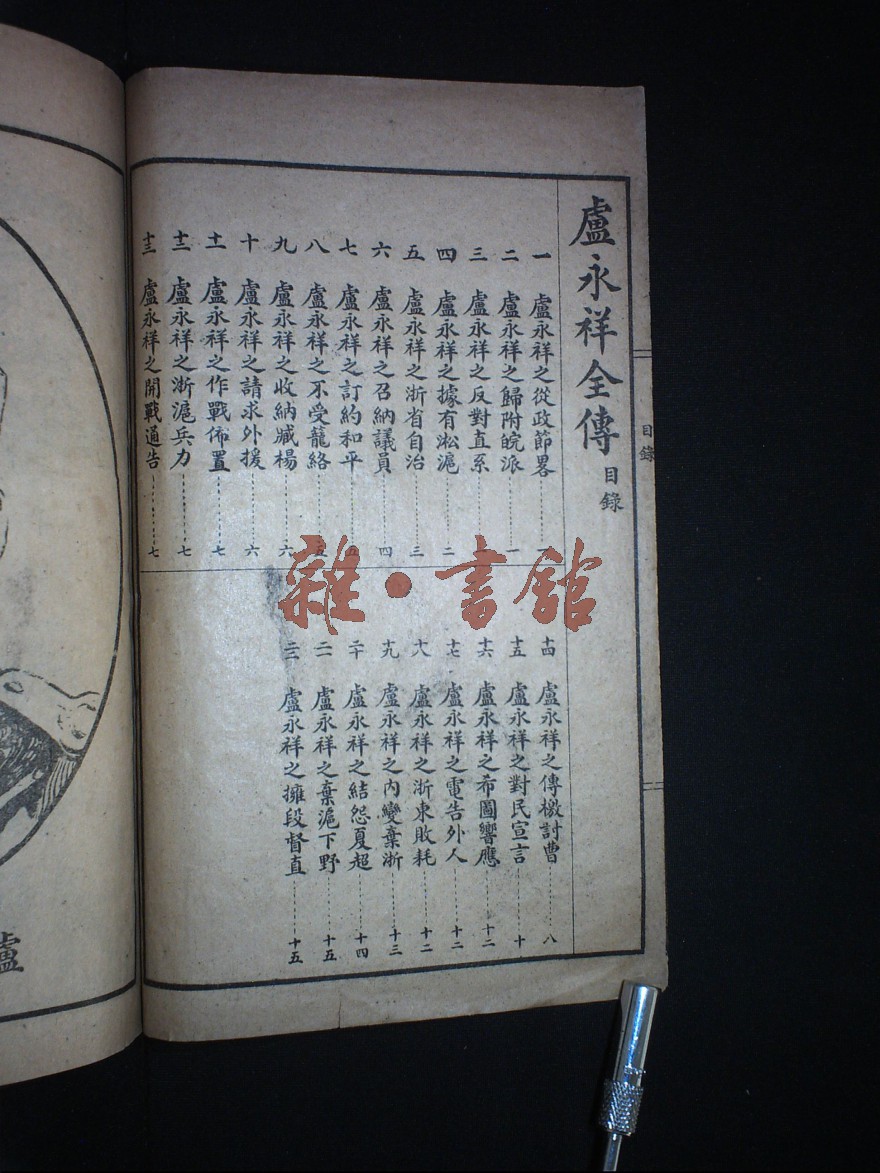 盧永祥全傳 目錄
一 盧永祥之從政節畧 一
二 盧永祥之歸附皖派 一
三 盧永祥之反對直系
四 盧永祥之據有淞滬 二
五 盧永祥之浙省自治 三
六 盧永祥之召納議員 四
七 盧永祥之訂約和平 五
八 盧永祥之不受籠絡 五
九 盧永祥之收納臧楊 六
十 盧永祥之請求外援 六
十一 盧永祥之作戰佈置 七
十二 盧永祥之浙滬兵力 七
十三 盧永祥之開戰通告 七
十四 盧永祥之傳檄討曹 八
十五 盧永祥之對民宣言 十
十六 盧永祥之希圖響應 十二
十七 盧永祥之電告外人 十二
十八 盧永祥之浙東敗耗 十二
十九 盧永祥之內變棄浙 十三
二十 盧永祥之結怨夏超 十四
二一 盧永祥之棄滬下野 十五
二二 盧永祥之擁段督直 十五
目錄
盧
雜·書館